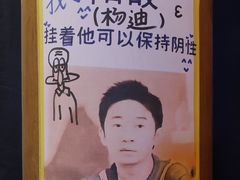 我
(杨迪)
挂着他可以保持阴性